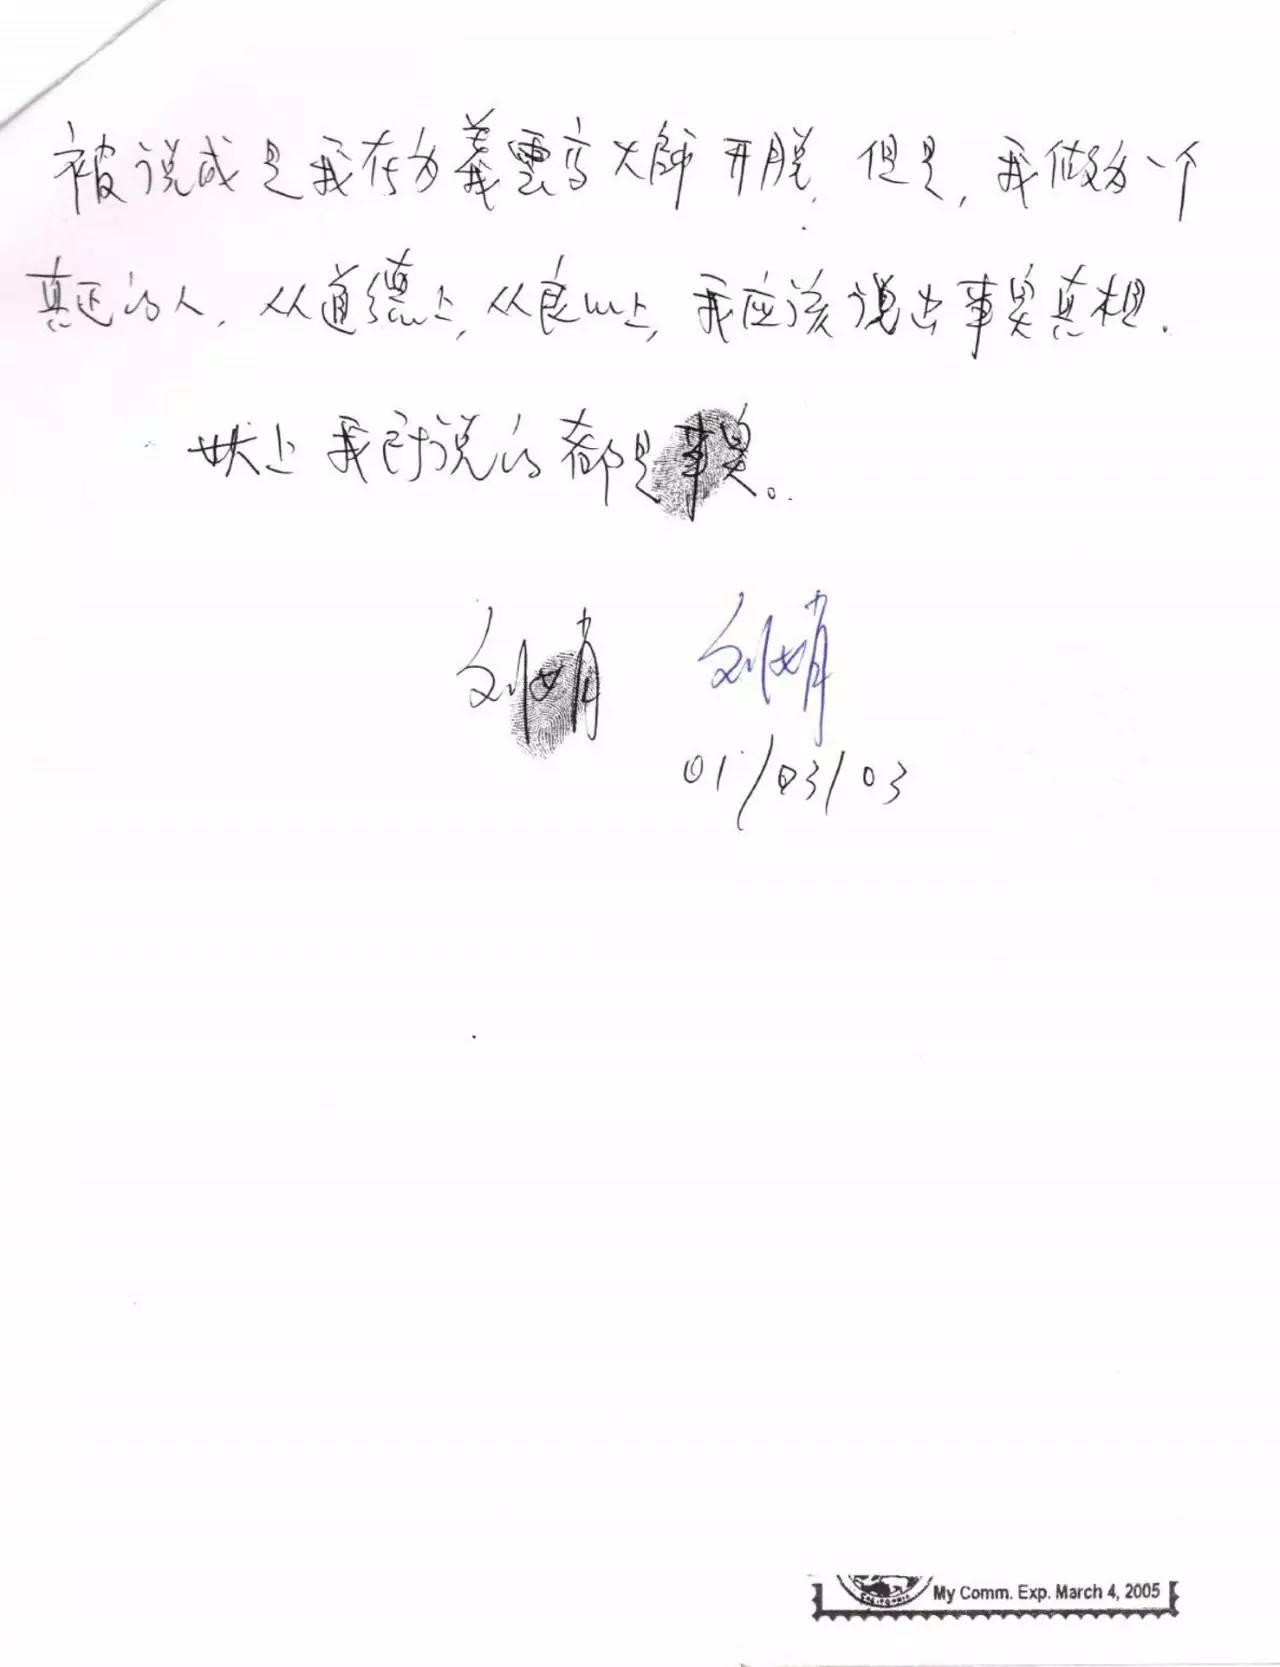 被说成是我在为義雲高大師开脱,但是,我做为一个
真正的人,从道德上,从良心上,我应该说出事实真相.
以上我所说的都是事实。
刘娟 刘娟
01/03/03
CALIFORNIA
My Comm. Exp. March 4, 2005